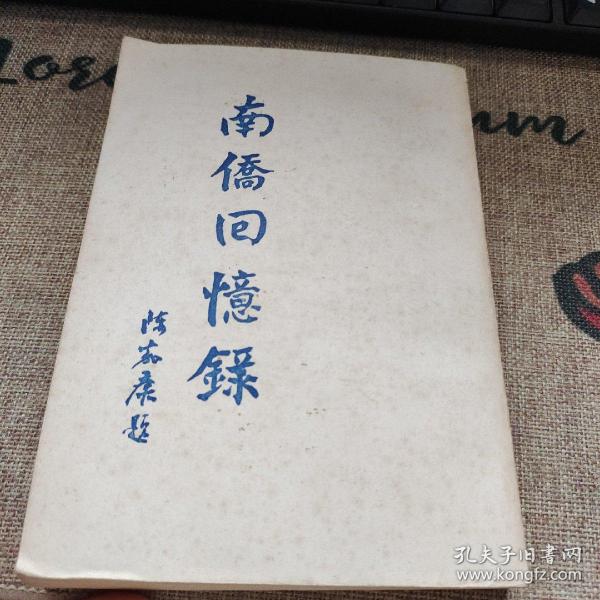 南僑回憶錄
陈嘉庚题
孔夫子旧书网
www.kongfz.com